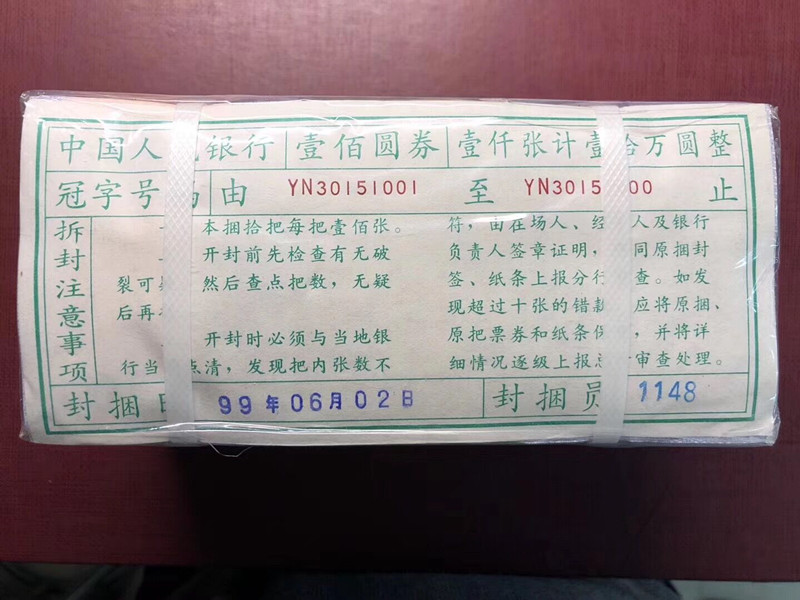 中国人 银行 壹佰圆券 壹仟张计壹拾万圆整
冠字号 由 YN30151001 至 YN3015 00 止
拆封注意事项
本捆拾把每把壹佰张。
开封前先检查有无破
裂可 然后查点把数，无疑
后再
开封时必须与当地银
行当 点清，发现把内张数不
符，由在场人、经 人及银行
负责人签章证明， 同原捆封
签、纸条上报分行 查。如发
现超过十张的错款 应将原捆、
原把票券和纸条 ，并将详
细情况逐级上报 审查处理。
封捆 99年06月02日 封捆员 1148